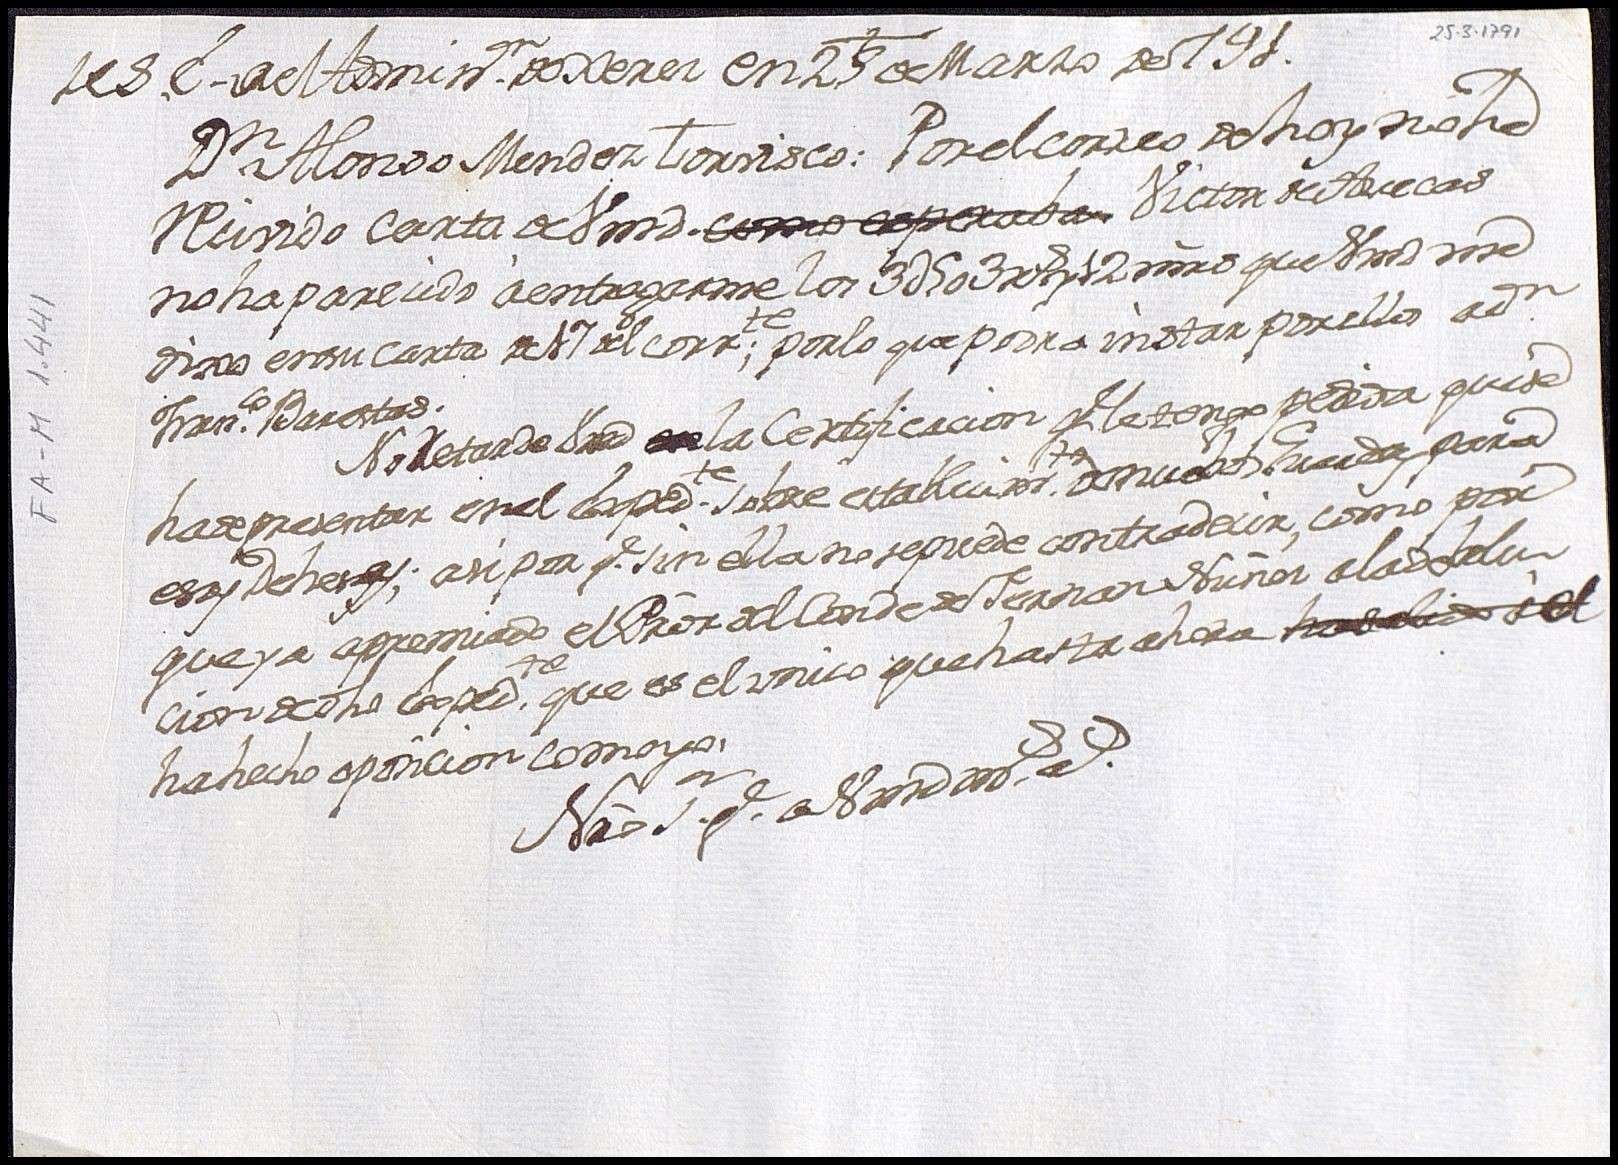 25-3-1791
FA-M 1.441
S. E. al Admin.or de Xerez en 25 de Marzo de 791.
Dn Alonso Mendez Torvisco: Por el correo de hoy no he
recivido carta de Vmd. como esperaba. Victor de Arecas
no ha parecido a entregarme los 12 mrs que Vmd me
dixo en su carta de 17 del corr.te; por lo que podra instar por ello a Dn
Fran.co Barestas.
No retarde Vmd en la Certificacion q.e le tengo pedida que se
ha de presentar en el Exped.te sobre establecim.to de nuebos Guardas para
esas Dehesas; asi por q.e sin ella no se puede contradecir, como por
que ya apremiado el Pror del Conde de Fernan Nuñez a la debolu-
cion de dho Exped.te que es el unico que hasta ahora ha salido
ha hecho oposicion como yo.
Nro S.or g.e a Vmd m.s a.s